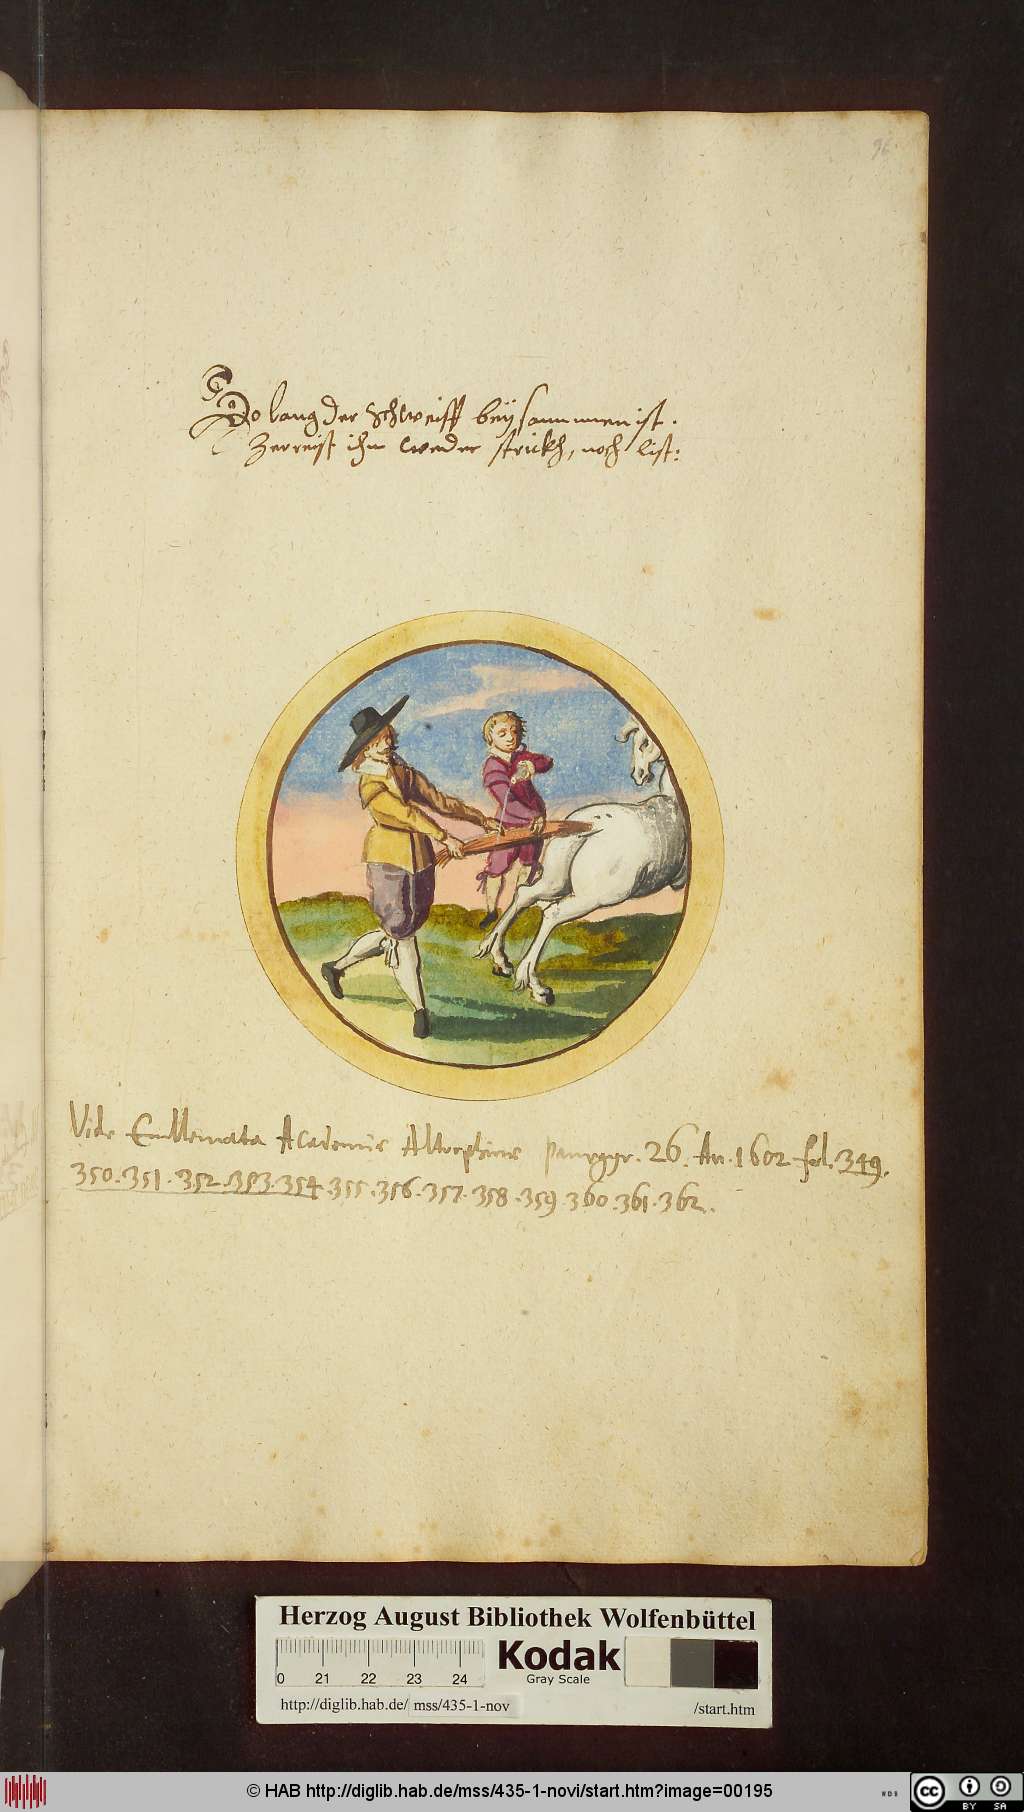 96
So lang der Schweiff beÿsammen ist.
Zerreist ihn weder strickh, noch list:
Vide Emblemata Academiæ Altorphinæ Panegyr. 26. An. 1602 fol. 349.
350. 351. 352. 353. 354. 355. 356. 357. 358. 359. 360. 361. 362.
Herzog August Bibliothek Wolfenbüttel
0 21 22 23 24
Kodak
Gray Scale
http://diglib.hab.de/ mss/435-1-nov /start.htm
© HAB http://diglib.hab.de/mss/435-1-novi/start.htm?image=00195
WDB
cc BY SA